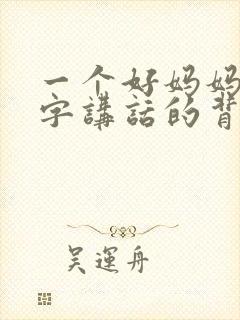 一个好妈妈
字講話的背
吴運舟